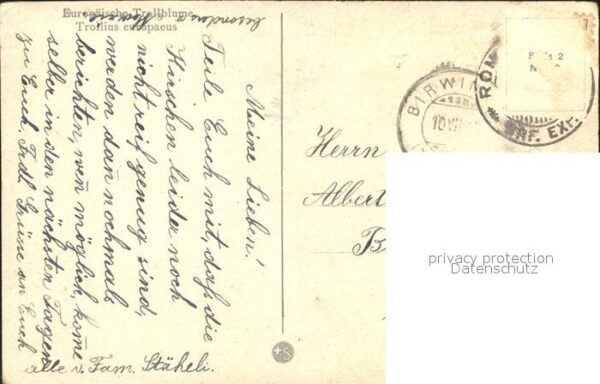 Europäische Trollblume
Trollius europaeus
Meine Lieben!
Teile Euch mit, daß die
Kirschen leider noch
nicht reif genug sind,
werden dan nochmals
berichten, wen möglich, kome
selber in den nächsten Tagen
zu Euch, Frdl. Grüße an Euch
alle v. Fam. Stäheli.
besonders
Herrn
Albert
B
BIRWIN
10 VII
ROM
RF. EXP.
+S
privacy protection
Datenschutz